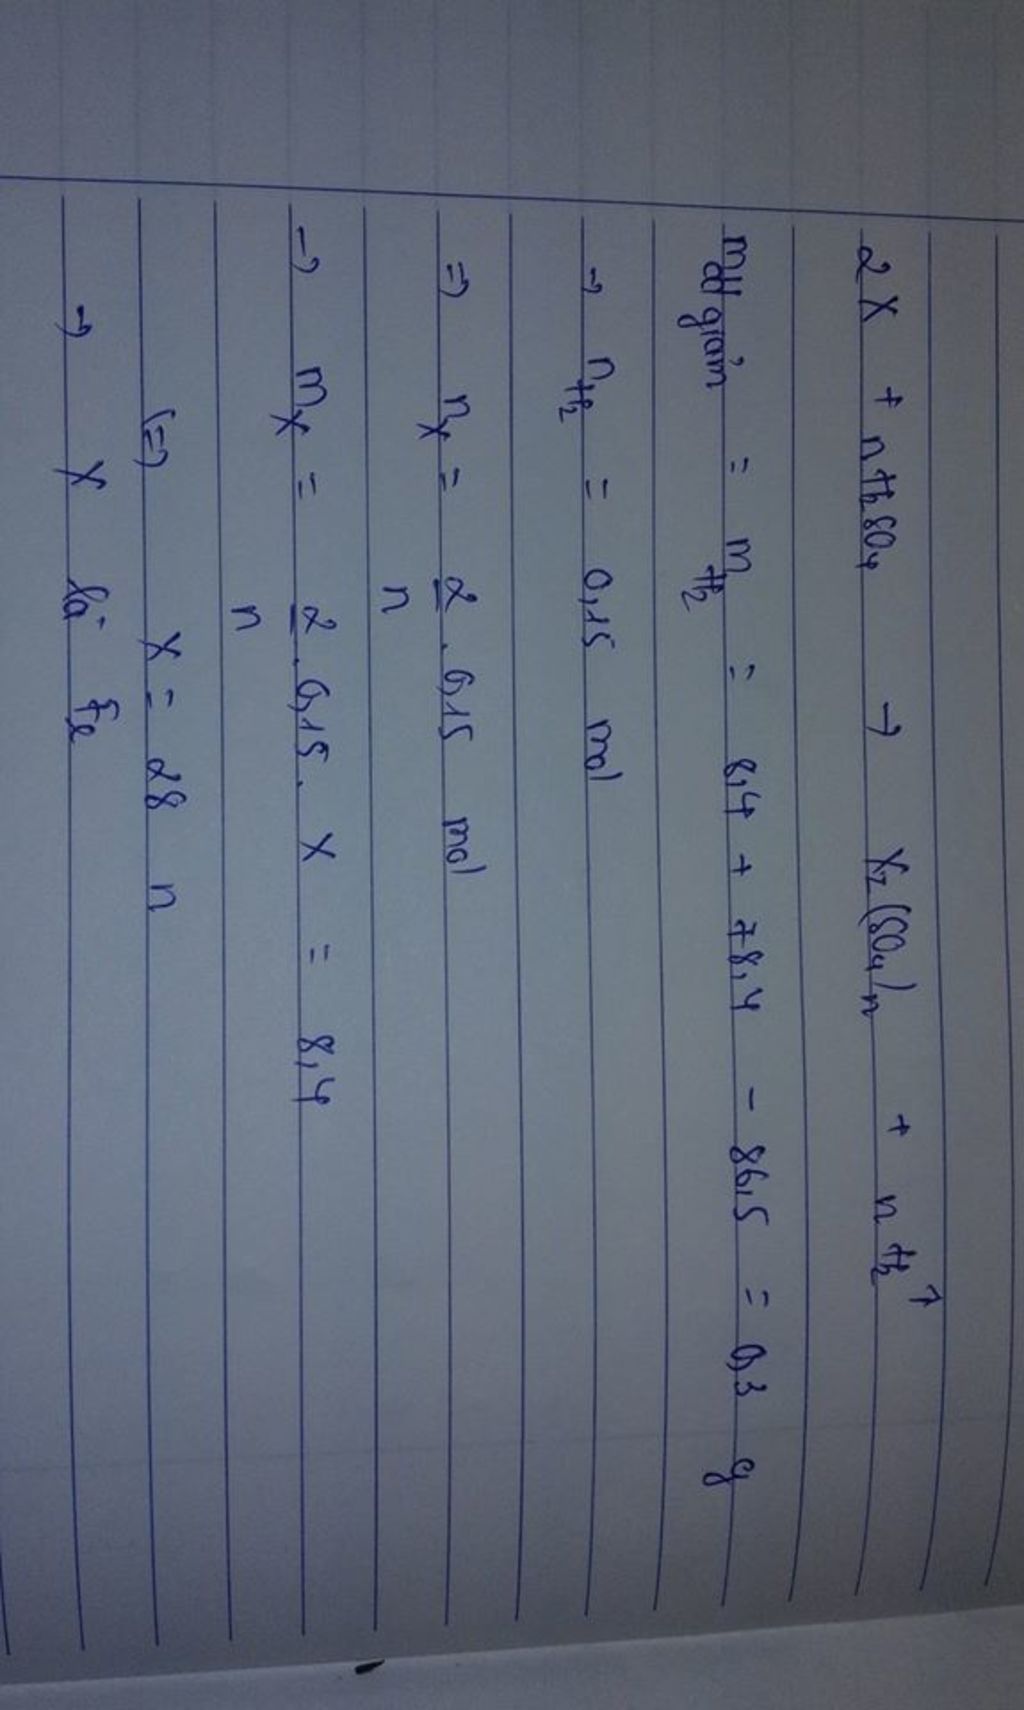 2X + nH₂SO₄ → X₂(SO₄)n + nH₂↑
mdd giảm = mH₂ = 8,4 + 78,4 - 86,5 = 0,3 g
→ nH₂ = 0,15 mol
=> nX = 2/n . 0,15 mol
→ mX = 2/n . 0,15 . X = 8,4
(=) X = 28 n
→ X là Fe